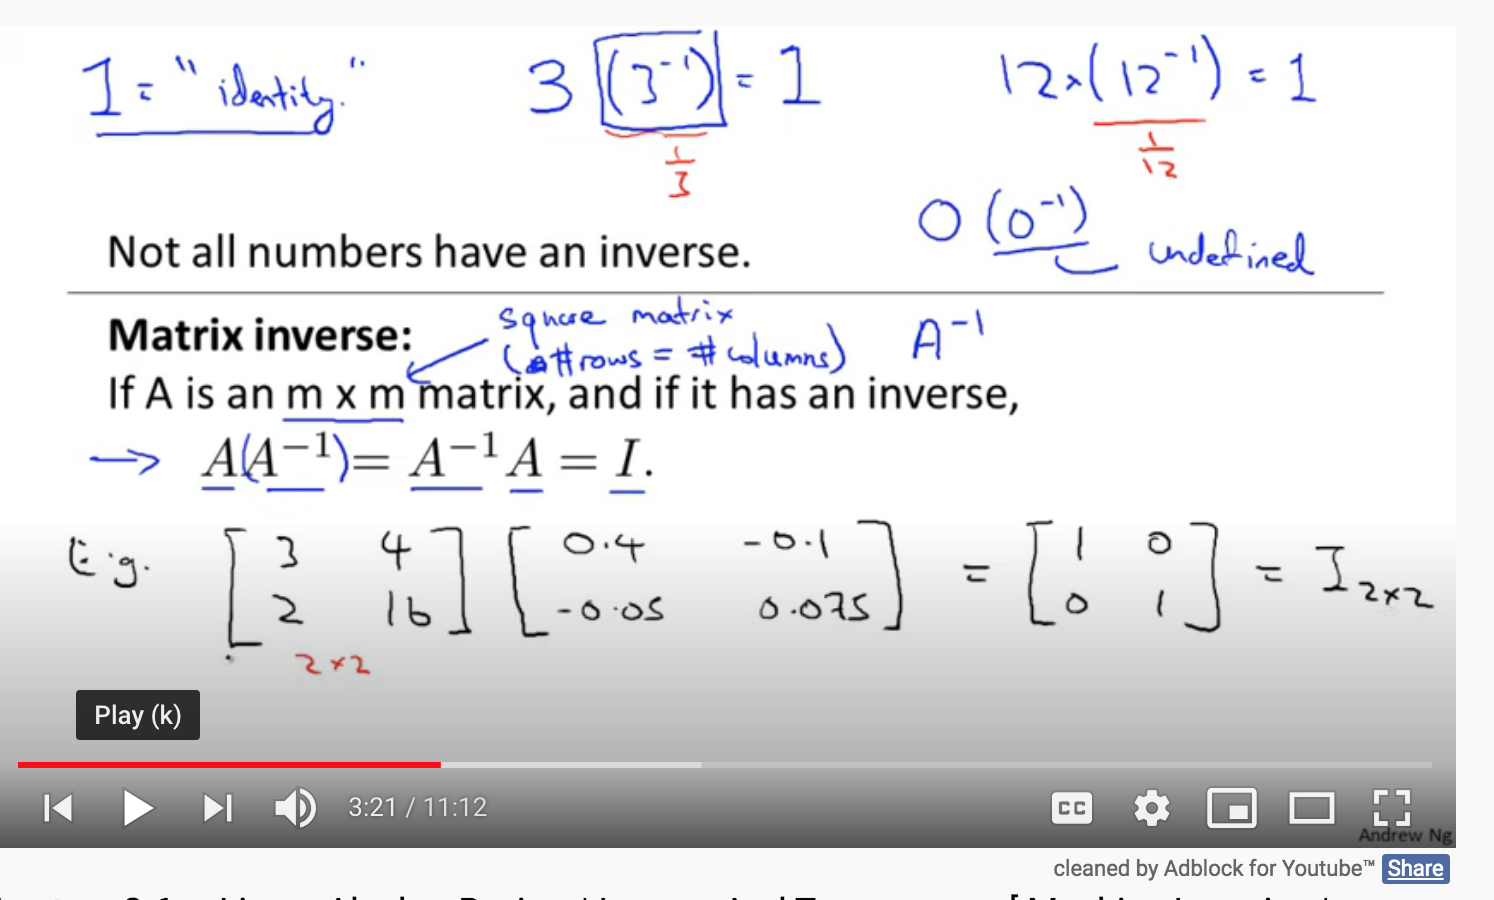 1 = "identity."
3 (3⁻¹) = 1
1/3
12×(12⁻¹) = 1
1/12
0 (0⁻¹) undefined
Not all numbers have an inverse.
Matrix inverse:
square matrix
(#rows = #columns)
A⁻¹
If A is an m x m matrix, and if it has an inverse,
→ A(A⁻¹) = A⁻¹A = I.
E.g. [3 4] [0.4 -0.1] = [1 0] = I 2×2
[2 16] [-0.05 0.075] [0 1]
2×2
Play (k)
3:21 / 11:12
CC
Andrew Ng
cleaned by Adblock for Youtube™ Share